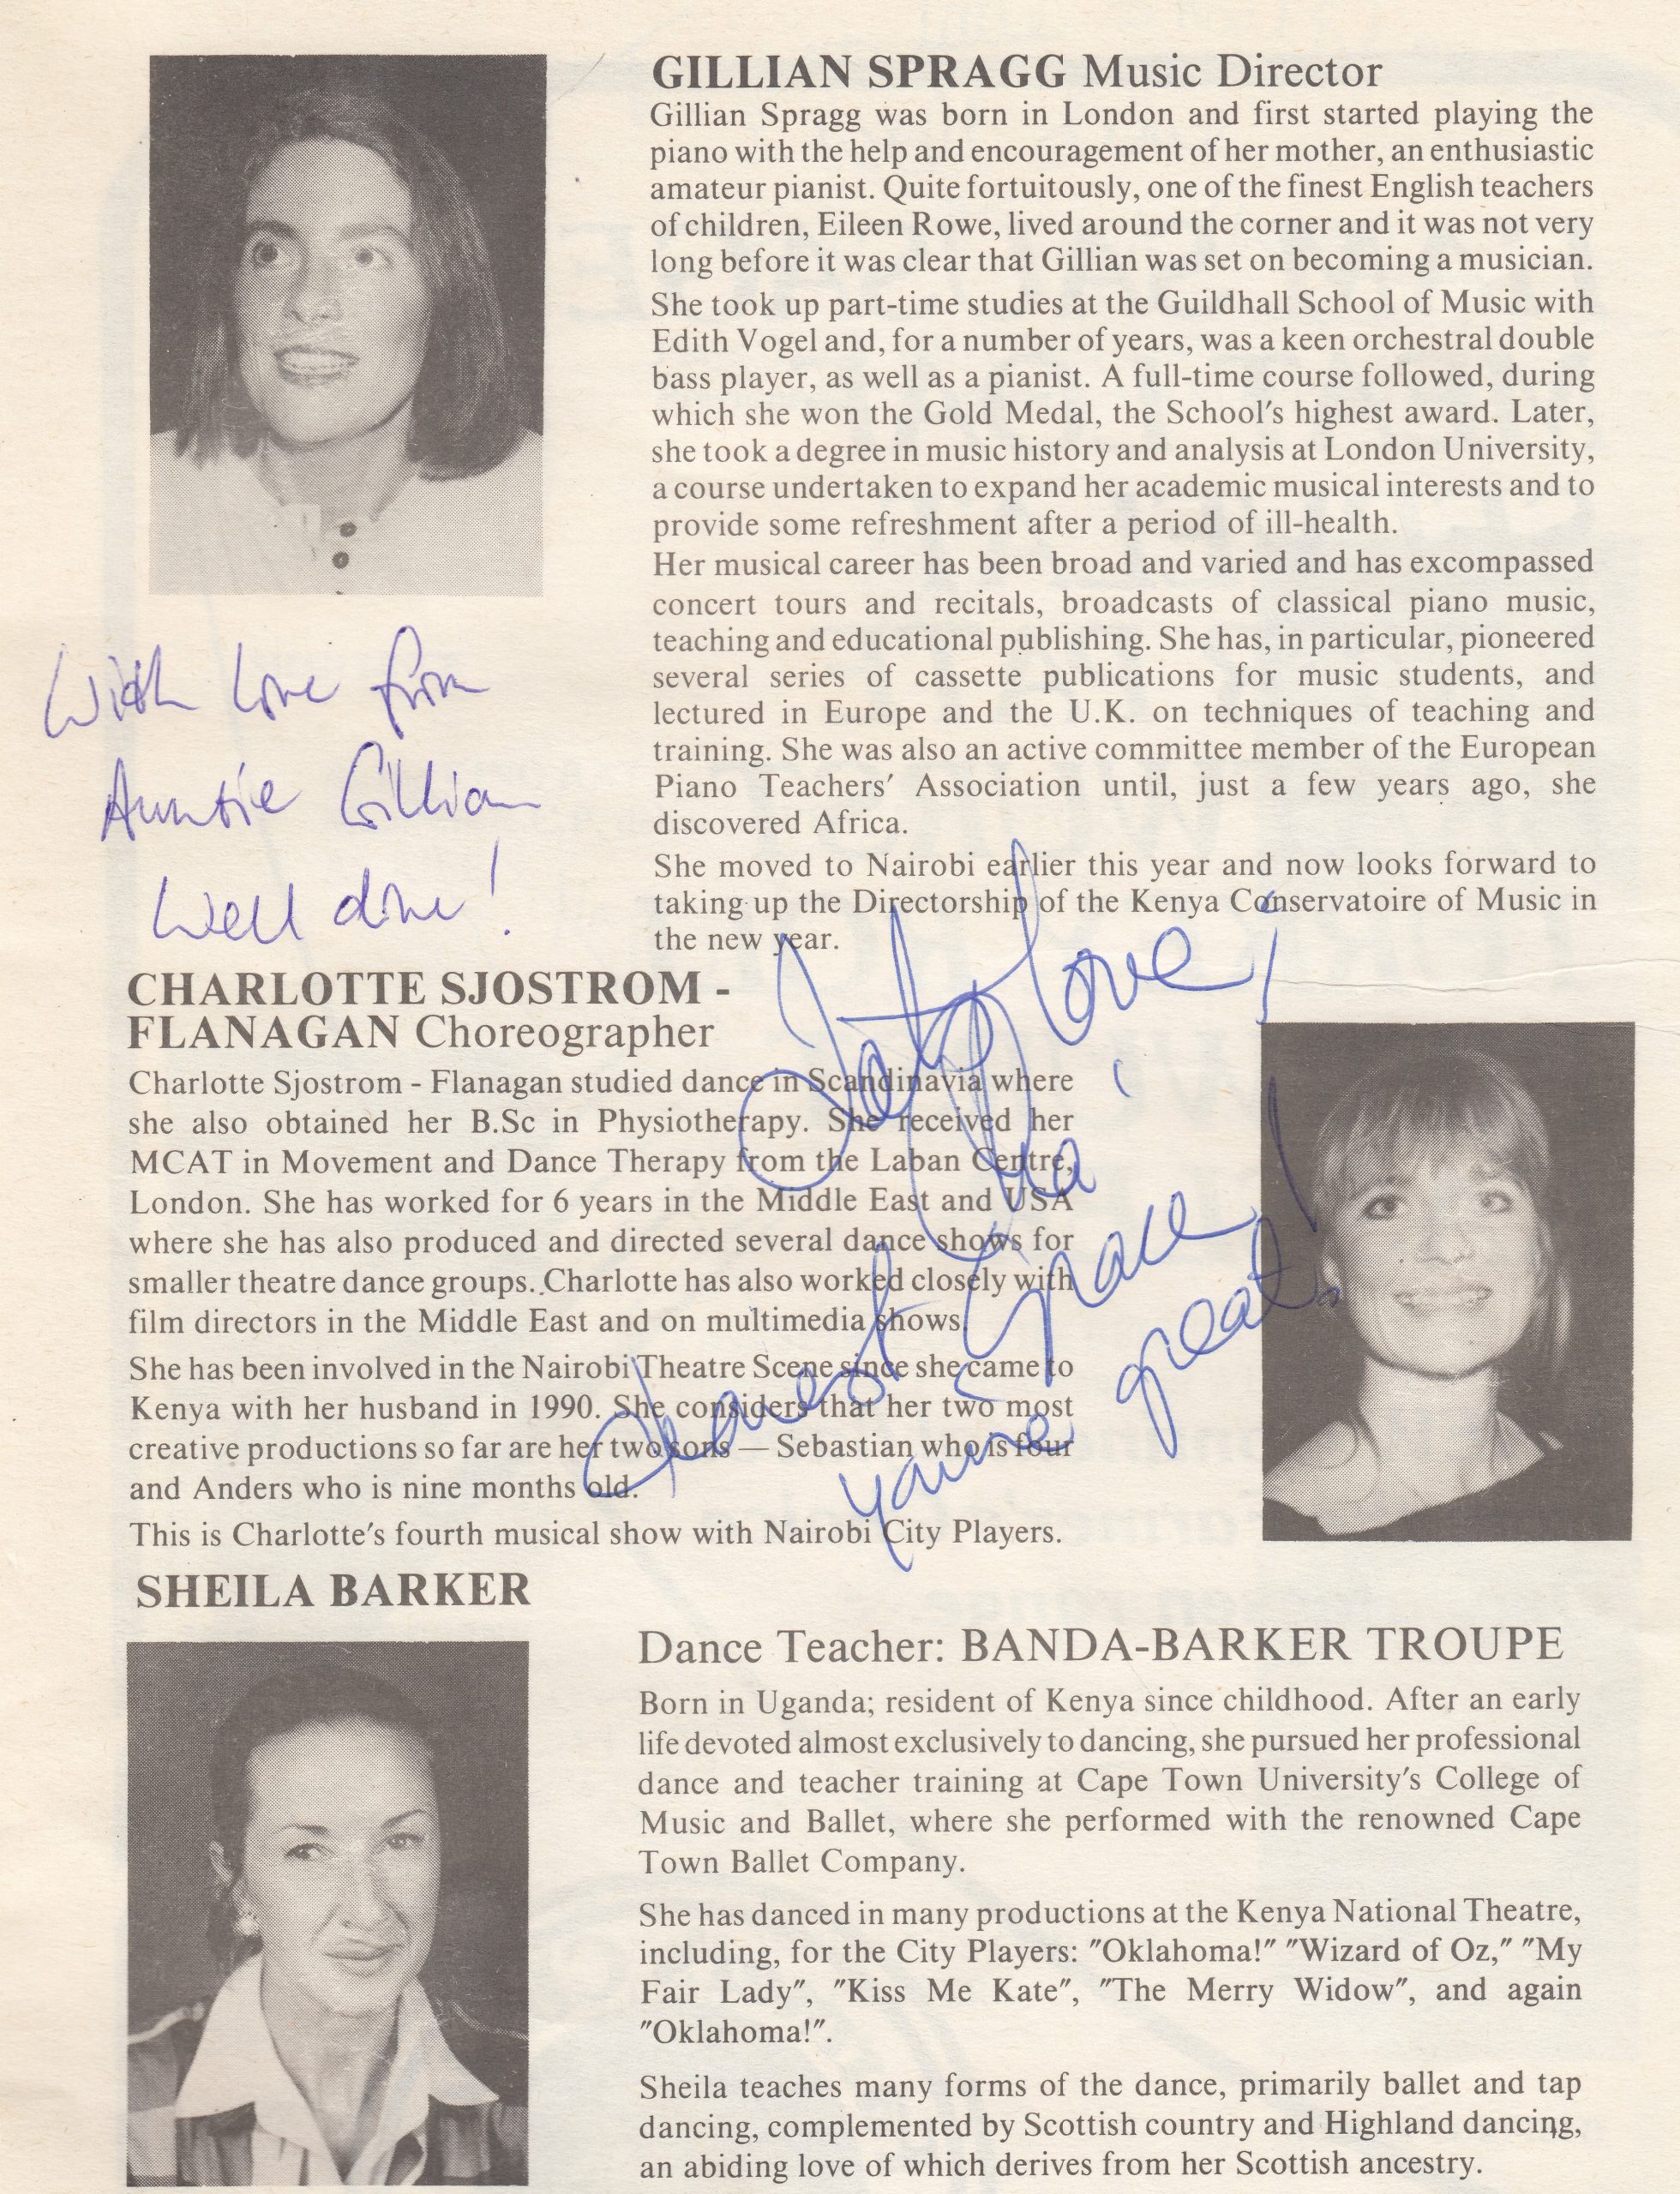 GILLIAN SPRAGG Music Director
Gillian Spragg was born in London and first started playing the
piano with the help and encouragement of her mother, an enthusiastic
amateur pianist. Quite fortuitously, one of the finest English teachers
of children, Eileen Rowe, lived around the corner and it was not very
long before it was clear that Gillian was set on becoming a musician.
She took up part-time studies at the Guildhall School of Music with
Edith Vogel and, for a number of years, was a keen orchestral double
bass player, as well as a pianist. A full-time course followed, during
which she won the Gold Medal, the School's highest award. Later,
she took a degree in music history and analysis at London University,
a course undertaken to expand her academic musical interests and to
provide some refreshment after a period of ill-health.
Her musical career has been broad and varied and has excompassed
concert tours and recitals, broadcasts of classical piano music,
teaching and educational publishing. She has, in particular, pioneered
several series of cassette publications for music students, and
lectured in Europe and the U.K. on techniques of teaching and
training. She was also an active committee member of the European
Piano Teachers' Association until, just a few years ago, she
discovered Africa.
She moved to Nairobi earlier this year and now looks forward to
taking up the Directorship of the Kenya Conservatoire of Music in
the new year.
With love from
Auntie Gillian
Well done!
CHARLOTTE SJOSTROM -
FLANAGAN Choreographer
Charlotte Sjostrom - Flanagan studied dance in Scandinavia where
she also obtained her B.Sc in Physiotherapy. She received her
MCAT in Movement and Dance Therapy from the Laban Centre,
London. She has worked for 6 years in the Middle East and USA
where she has also produced and directed several dance shows for
smaller theatre dance groups. Charlotte has also worked closely with
film directors in the Middle East and on multimedia shows.
She has been involved in the Nairobi Theatre Scene since she came to
Kenya with her husband in 1990. She considers that her two most
creative productions so far are her two sons — Sebastian who is four
and Anders who is nine months old.
This is Charlotte's fourth musical show with Nairobi City Players.
Dearest Grace,
you're great!
love,
SHEILA BARKER
Dance Teacher: BANDA-BARKER TROUPE
Born in Uganda; resident of Kenya since childhood. After an early
life devoted almost exclusively to dancing, she pursued her professional
dance and teacher training at Cape Town University's College of
Music and Ballet, where she performed with the renowned Cape
Town Ballet Company.
She has danced in many productions at the Kenya National Theatre,
including, for the City Players: "Oklahoma!" "Wizard of Oz," "My
Fair Lady", "Kiss Me Kate", "The Merry Widow", and again
"Oklahoma!".
Sheila teaches many forms of the dance, primarily ballet and tap
dancing, complemented by Scottish country and Highland dancing,
an abiding love of which derives from her Scottish ancestry.